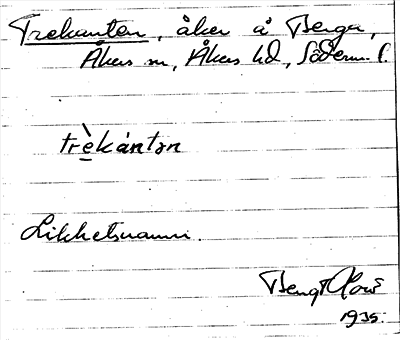 Trekanten, åker å Berga,
Åkers sn, Åkers hd, Söderm. l.
trè̱kántən
Likhetsnamn.
Bengt
1935.